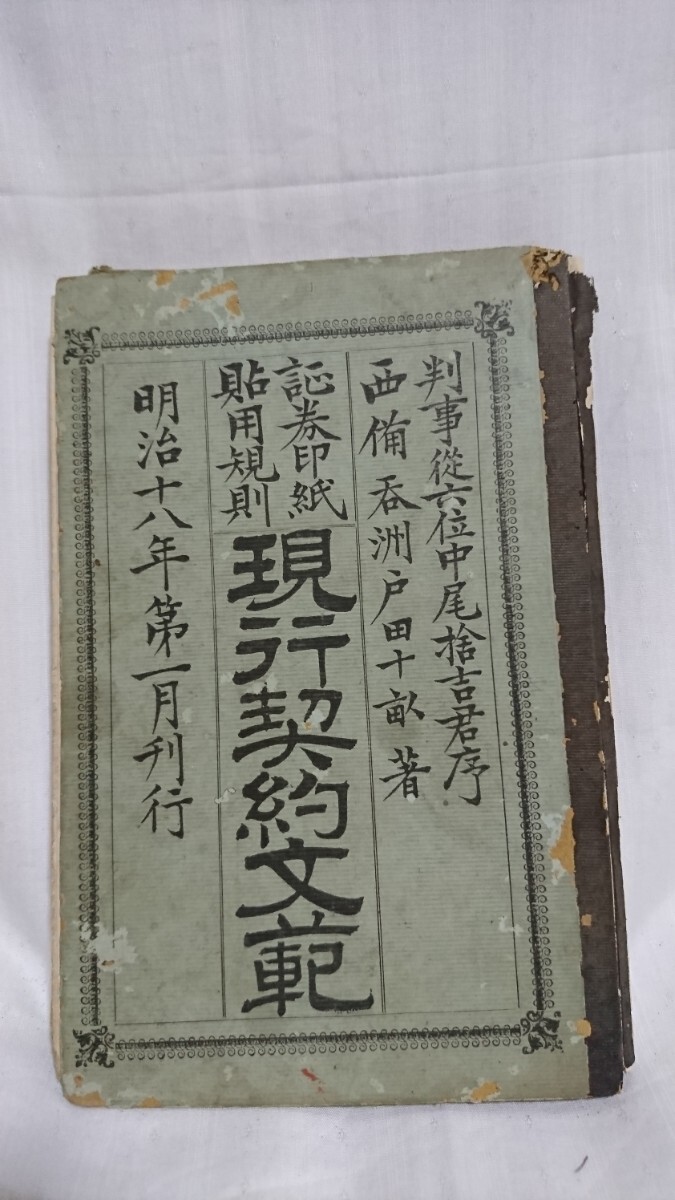 判事從六位中尾捨吉君序
西備 呑洲戸田十畝 著
証券印紙
貼用規則
現行契約文範
明治十八年第一月刊行